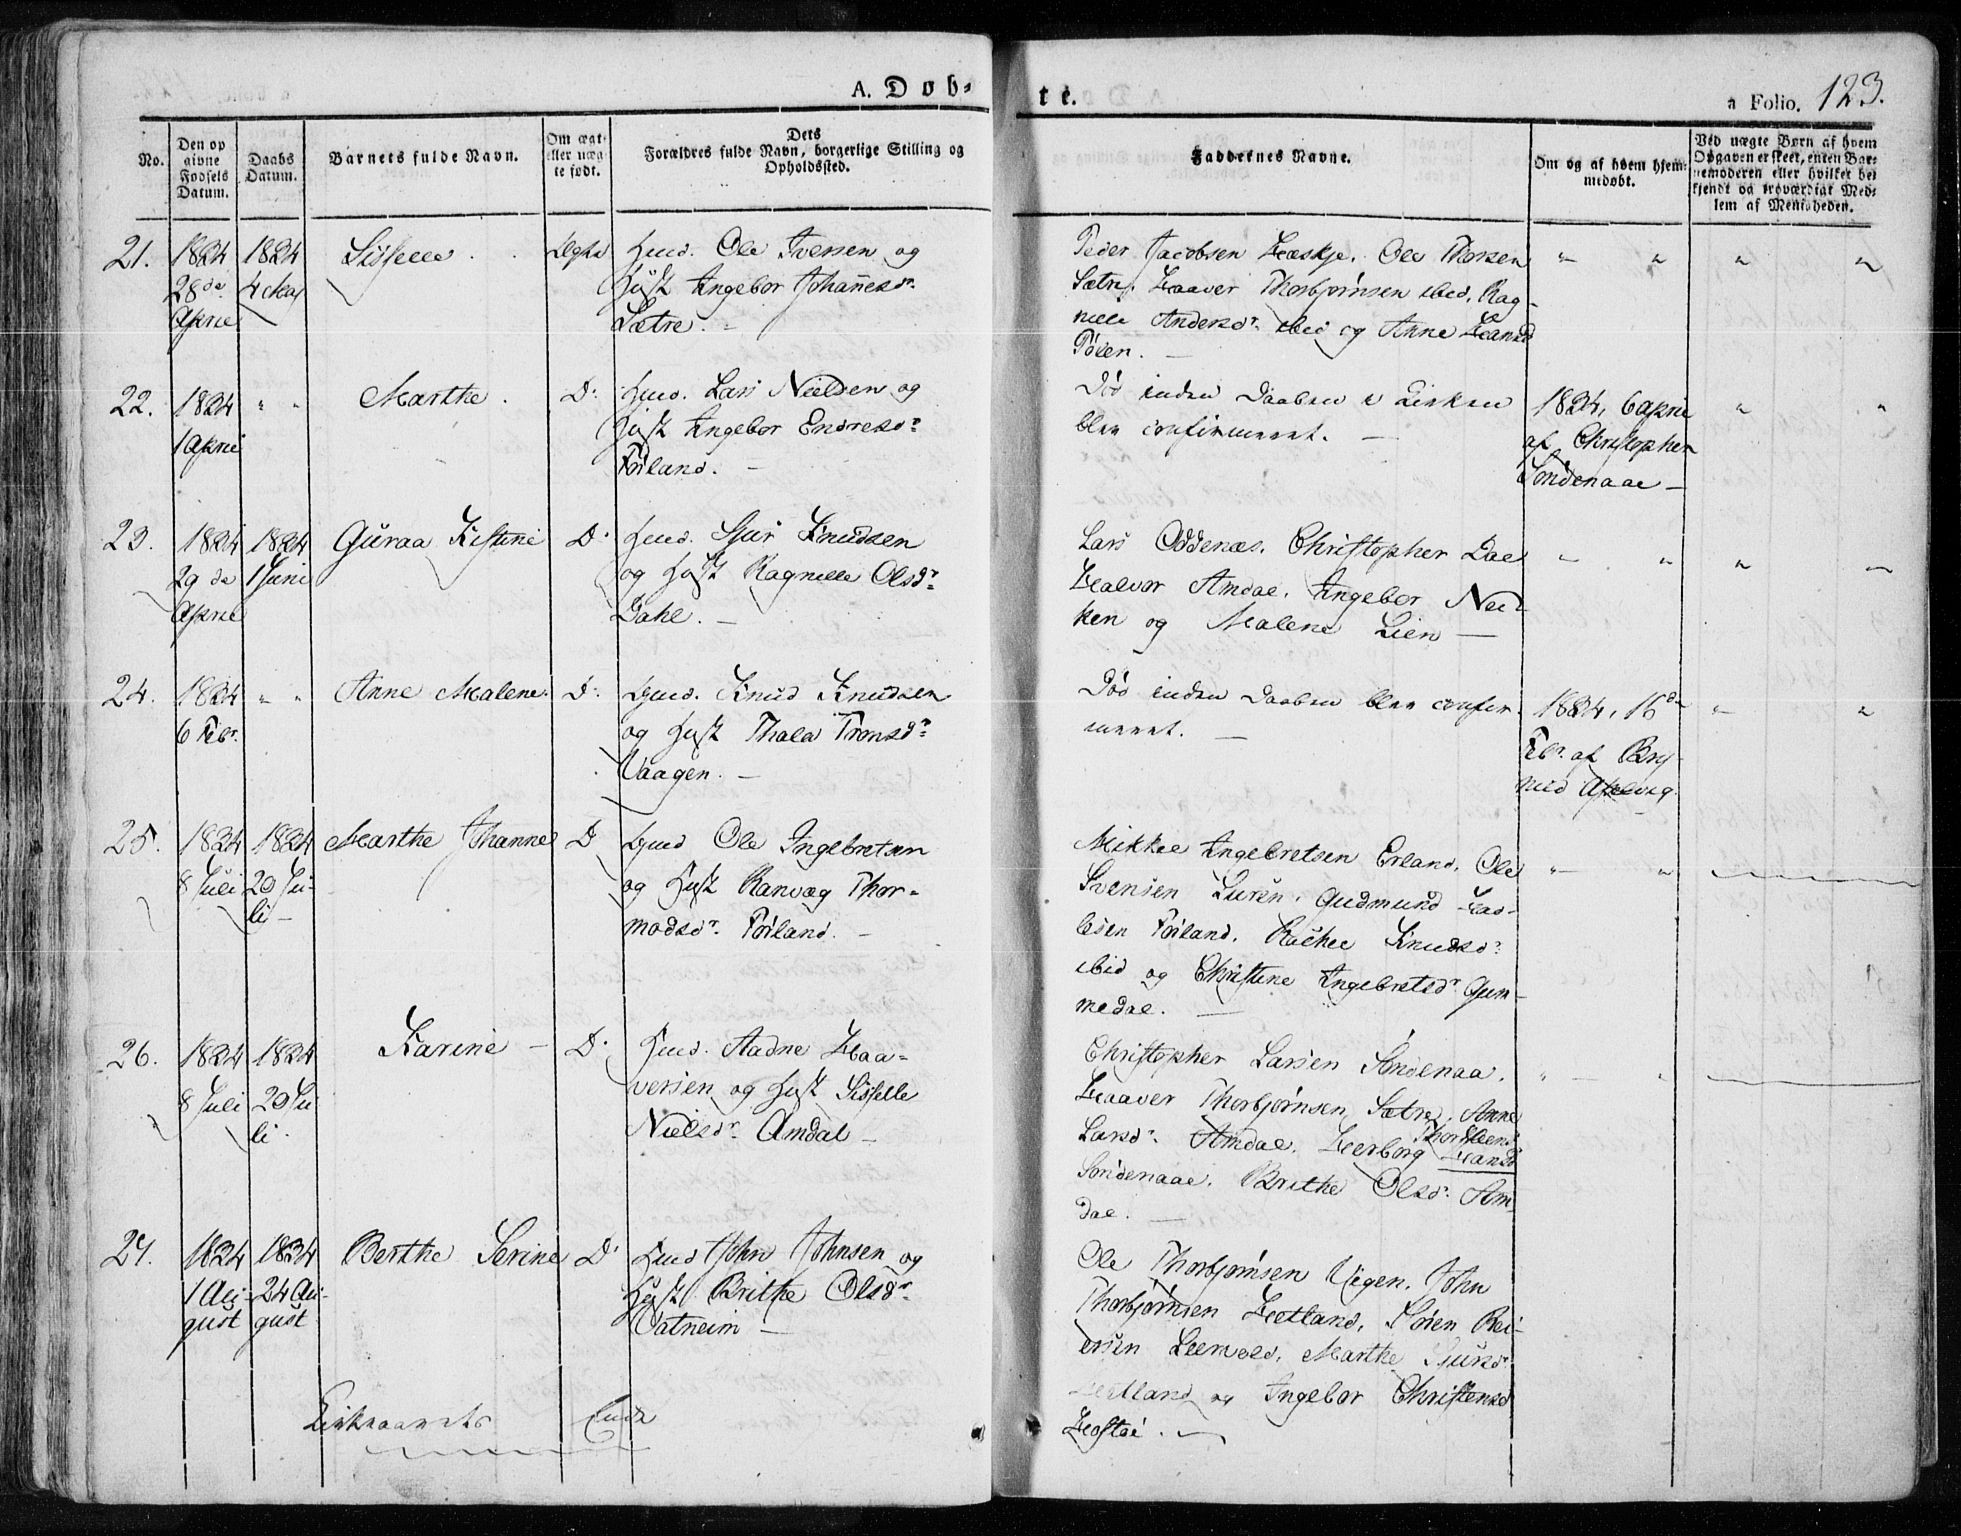 A. Døb-
te.
a Folio. 123.
No.
Den op
givne
Fødsels
Datum.
Daabs
Datum.
Barnets fulde Navn.
Om ægt
eller uæg
te født.
Dets
Forældres fulde Navn, borgerlige Stilling og
Opholdssted.
Faddernes Navne.
Om og af hvem hjem
medøbt.
Ved uægte Børn af hvem
Opgaven er skeet, enten Bar-
nemoderen eller hvilket be
kjendt og troværdigt Med-
lem af Menigheden.
21.
1824
28de
April
1824
4 Maj
Sisselle
Ægte
Huus. Ole Iversen og
Hust Ingebor Johannesdr
Sætre.
Peder Jacobsen Hæskje. Ole Thorsen
Sætre, Haaver Thorbjørnsen ibid, Rag-
nille Andersdr ibid og Anne Hansd
Tølen.
22.
1824
1 April
" "
Marthe.
D:
Huus. Lars Nielsen og
Hust Ingebor Endresdr
Föiland.
Död inden Daaben i Kirken
blev confirmeret.
1824, 6 April
af Christopher
Söndenaae
23.
1824
29 de
April
1824
1 Juni
Guraa Kistine
D.
Huus. Sjur Knudsen
og Hust Ragnille Olsdr
Dahl.
Lars Oddenæs. Christopher Dal
Halvor Amdal. Ingebor Nee-
ken og Malene Lien
24.
1824
6 Febr.
" "
Anne Malene.
D.
Huus. Knud Knudsen
og Hust Thala Tronsdr
Vaagen.
Död inden Daaben blev confir-
meret.
1824, 16d
Febr. af Bry-
nild Apelvig.
25.
1824
8 Juli
1824
20 Ju-
li
Marthe Johanne
D
Huus Ole Ingebretsen
og Hust Ranvæg Thor-
modsdr. Föiland.
Mikkel Ingebretsen Erland, Ole
Svensen Lurén, Gudmund Had-
lesen Föiland, Rachel Knudsdr
ibid og Christine Ingebretsdr Gum-
medal.
26.
1824
8 Juli
1824
20 Ju
li.
Karine
D.
Huus. Aadne Haa-
versen og Hust Sisselle
Nielsdr Amdal
Christopher Larsen Söndenaa.
Haaver Thorbjørnsen, Sætre, Anne
Larsdr. Amdal. Herborg Hansd
Thorsteens
Söndenaae. Brithe Olsdr. Am-
dal.
27.
1824
1 Au-
gust
1824
24 Au-
gust
Berthe Serine
D.
Huus John Johnsen og
Hust Brithe Olsdr
Vatneim
Ole Thorbjørnsen Vigen. John
Thorbjørnsen Hetland, Sören Rei-
ersen Leervold, Marthe Sjursdr
Hetland og Ingebor Christensd
Hostöi.
Kirkeaarets Ende